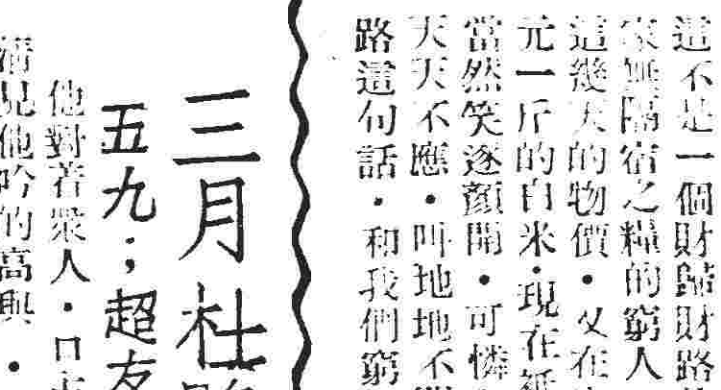 這不是一個財歸財路
家無隔宿之糧的窮人
這幾天的物價・又在
元一斤的白米・現在
當然笑逐顏開・可憐
天天不應・叫地地不
路這句話・和我們窮
三月杜
五九；超友
他對著眾人・口
清見他吟的高興・